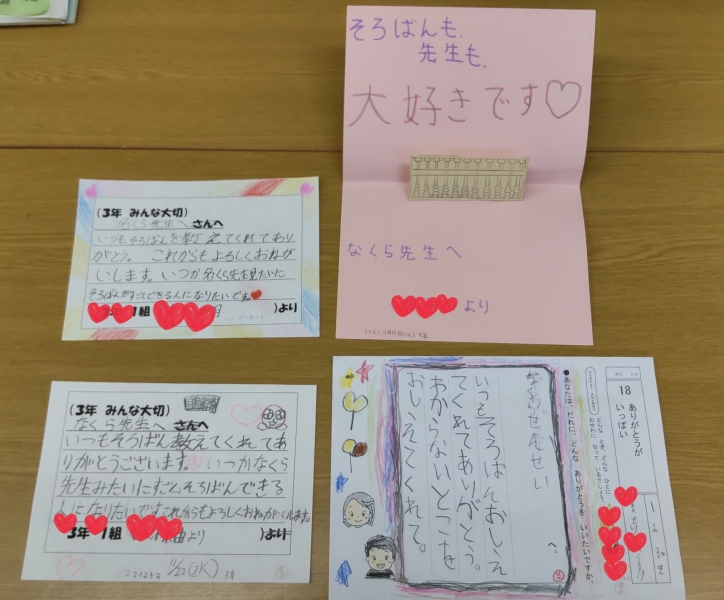 そろばんも、
先生も、
大好きです♡
なくら先生へ
より
(3年 みんな大切)
名くら先生へ さんへ
いつもそろばんを教えてくれてあり
がとう。これからもよろしくおねが
いします。いつか名くら先生見たいに
そろばんが できる人になりたいです。
1組 )より
(3年 みんな大切)
なくら先生へ さんへ
いつもそろばん教えてくれてあ
りがとうございます。いつかなくら
先生みたいにすごくそろばんできる
人になりたいですこれからもよろしくおねがいします。
3年 組 より )より
11/22
18
ありがとうが
いっぱい
●あなたは、だれに、どんな ありがとうを いいたいですか。
なくらせんせい
へ。
いつもそろばんおしえ
てくれてありがとう。
わからないとこを
おしえてくれて。